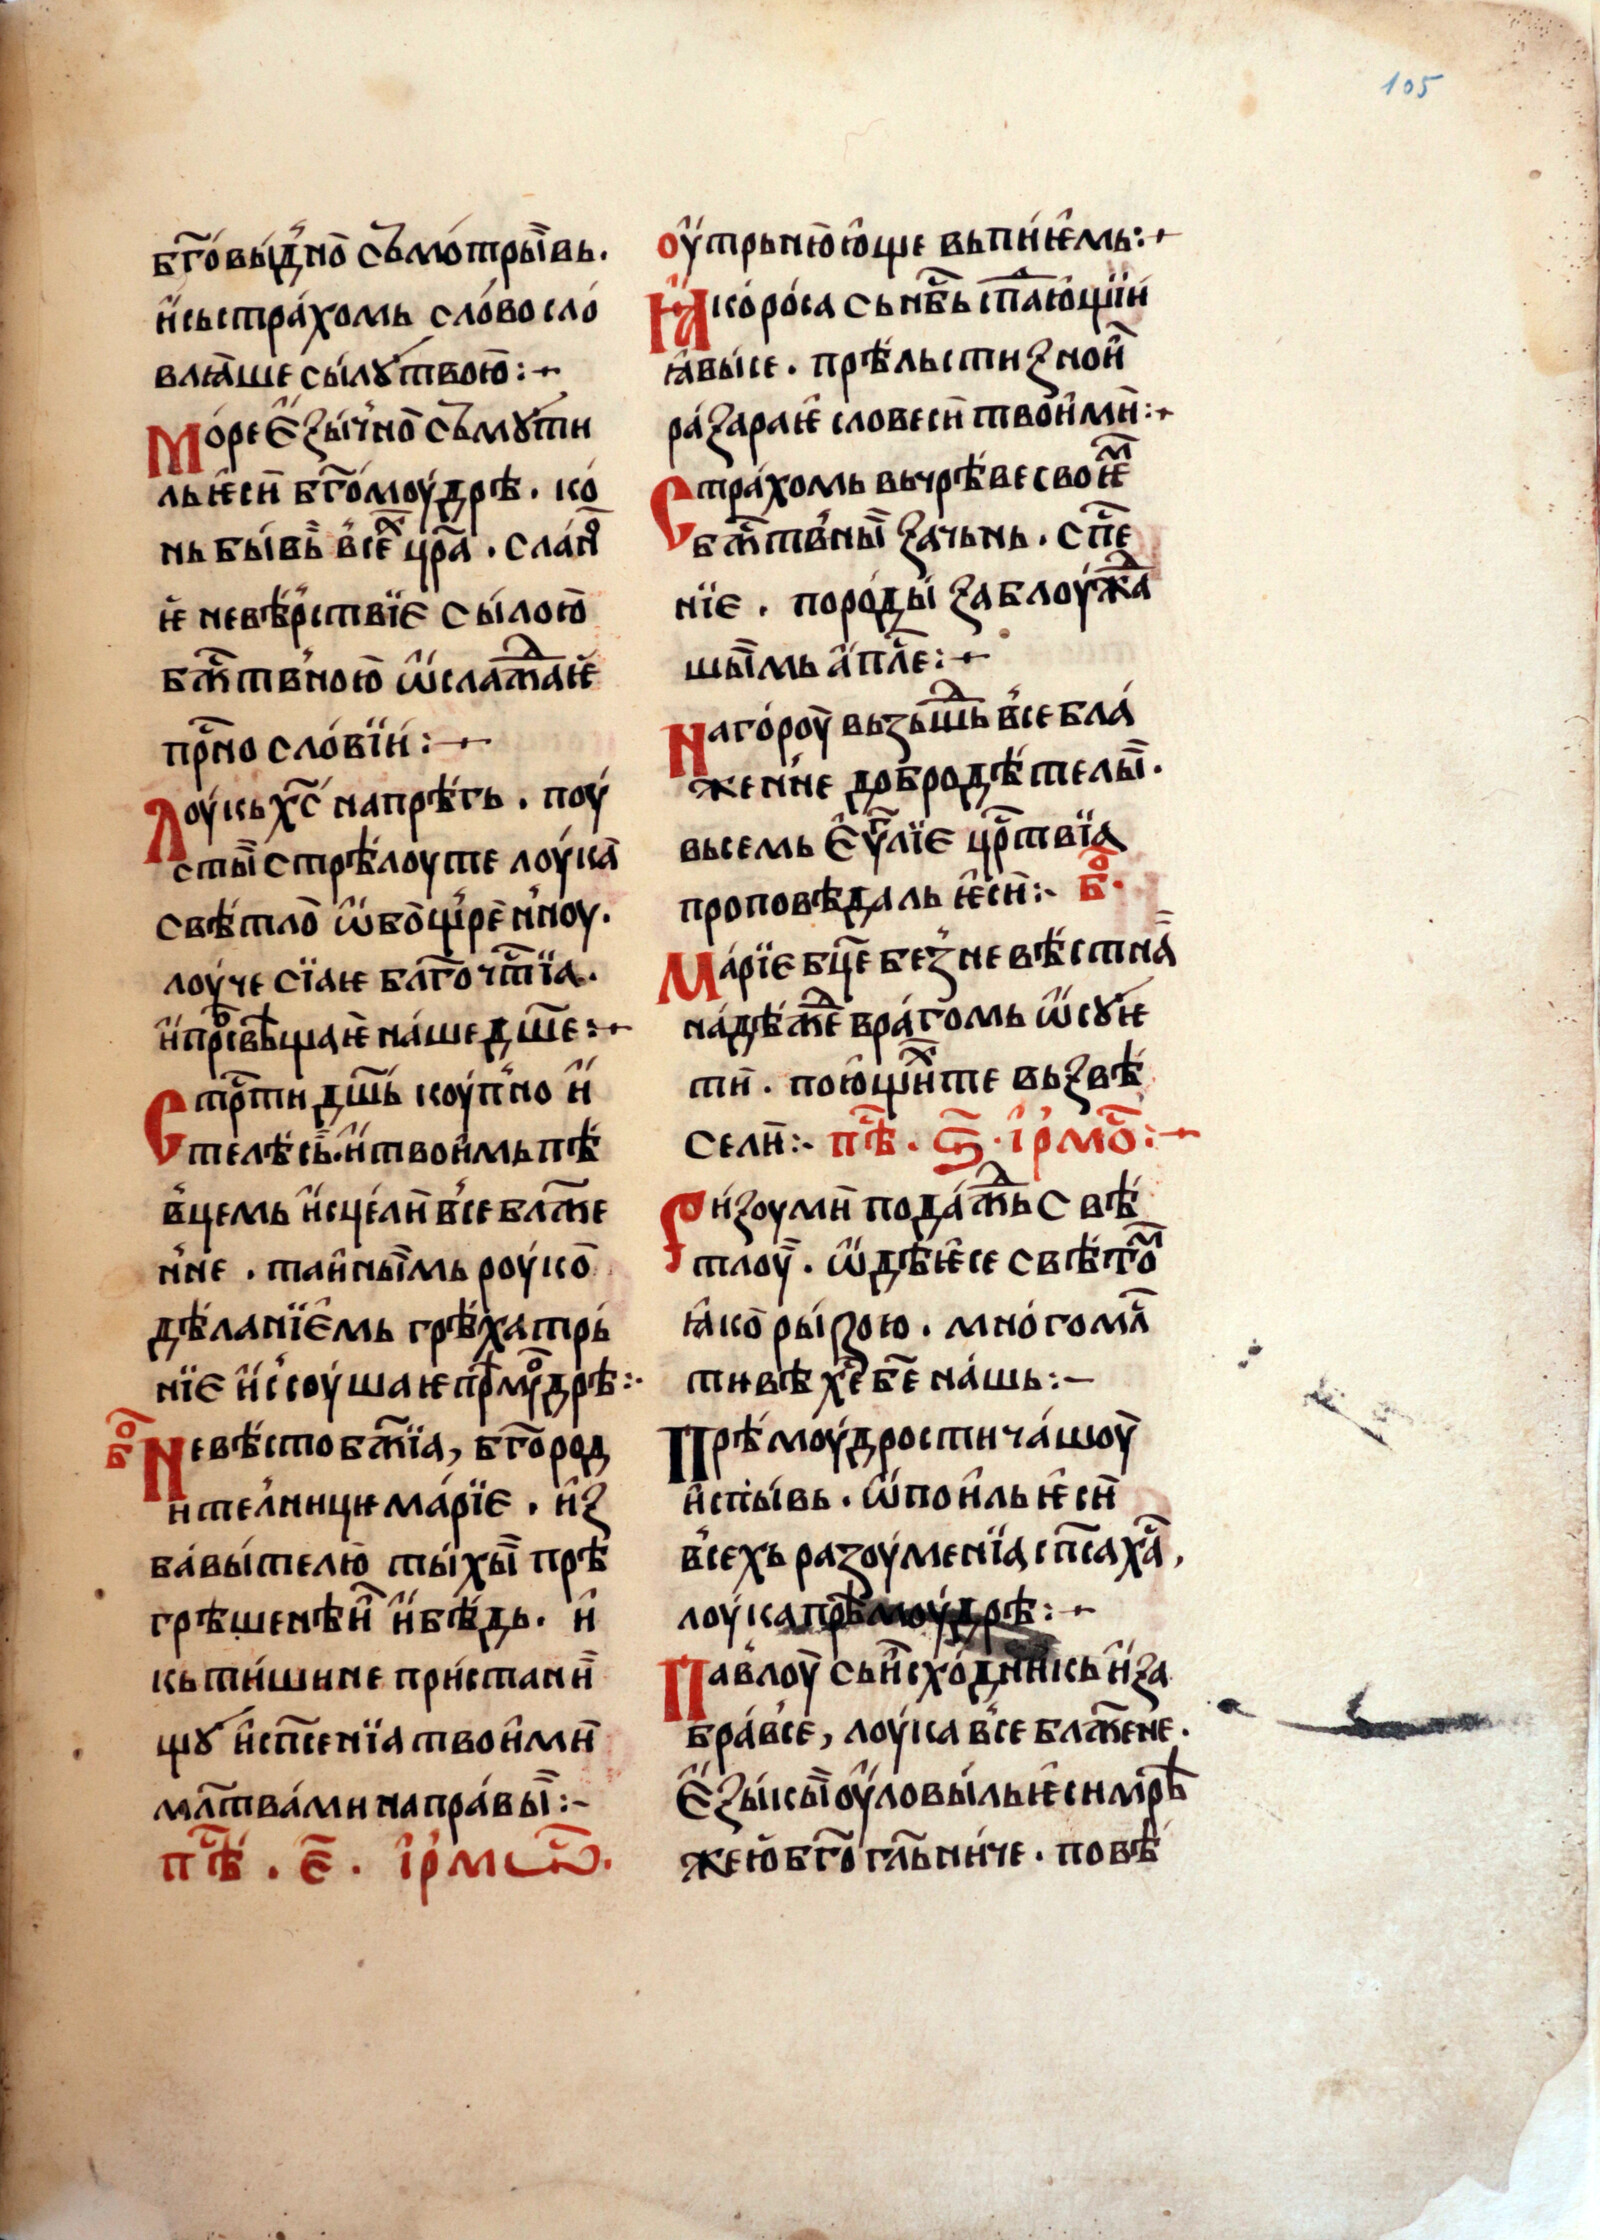 105
бг҃о́вы́д̾но̀ съмо́тры̏вь.
и҆̀сьстра́хомь сло́восло́
влꙗ҆́ше сы́лꙋ́твою̀:~
Мо́реѥ҆́зы́ч̾но̀ съмꙋ́ти
льѥ҆си̏ бг҃о́моу́дрѣ. ко́
нь бы́вь̏ в̾сеⷯ҇ цр҃а̀. сла́ноⷭ
ѥ҆ невѣ́р̾ствїе сы́лою̀
бж҃тв̾ною̀ ѿ҆слаждаѥ҆̀
прⷭ҇но сло́вїи́:~
Лоу́кь хс҃ напрѣ́гь. поу́
сты̏ стрѣ́лоуте лоу́ка̏
свѣ́тло̀ ѿ҆бо̀ѱ҆рѐн̾ноу.
лоу́че сїаѥ бл҃гоч҇тїа.
и҆̀просвѣ́щаѥ на́ше дш҃е:~
Стрⷭ҇ти дш҃ь коу́п̾но и҆̀
телѣ́сь̏.и҆̀твои҆мь пѣ́
в̾цемь и҆̀сцѣ́ли̏ в̾себлж҃е
н̾не. таи҆ны̏мь роу́ко̀
дѣ́ланїе҆́мь грѣ́хатрь́
нїе и҆̀с̾соу́шаѥ прѣ́мꙋдрѣ:~
боⷢ
Невѣ́стобж҃їа, бг҃ород
ител̾ницимарїе. и҆з
ба́вы́телю̀ ты́хы̏ прѣ
грѣ́шенѣ́и҆̏ и҆̀бѣ́дь. и҆
кьти́шине при́стани̏
щꙋ́ и҆сп҃сенїа твои҆ми̏
мл҃твами напра́вы̏:~
пѣⷭ҇. е҃. і҆рмѡⷭ҇.
оу҆́трьню̀ю҆ще вьпию҆́мь:~
Ꙗ҆ко́ро́са сьнб҃ь спа́даю҆щїи́
ꙗ҆́высе. прѣ́льсти зно́и҆̏
ра́зараѥ҆ словеси̏ твои҆ми̏:~
Стра́хомь вьчрѣ́ве своѥⷨ҇
бж҃тв̾ны̏ зачьнь. сп҃се
нїе. поро́ды́ заблоу́жⷣа
шы̏мь а҆̀пⷭ҇ле:~
Наго́роу̏ вьзьшⷣь в̾себла́
же́нне до́бродѣ́телы̏.
вьсемь е҆́ѵⷢ҇лїе црⷭ҇твїа
проповѣ́даль ѥ҆си̏:~ боⷢ.
Марїе бц҃е без̾невѣ́стна̏
на́дѣ́жⷣе вра́го́мь ѿ҆сꙋ́ѥ
ти̏. пою́щи́хте вьзвѣ́
сели̏:~ пѣⷭ҇. ѕ҃. і҆рмоⷭ҇:~
Ри́зоуми̏ пода́жⷣь свѣ́
тлоу̏. ѿ҆дѣ́ѥ҆се свѣ́тоⷨ
ꙗ҆ко̀ ры́зою. мно́гомлⷭ҇
тивѣ хс҃е бж҃е на́шь:~
Прѣ́моу́дрости ча́шоу̏
и҆спы́вь. ѿ҆пои҆́ль ѥ҆си̏
в̾сехь разоу́менїа сп҃саха̏,
лоу́ка прѣ́моу́дрѣ:~
Павлоу̏ сьи҆̏схо́дни̏кь и҆̀за
бра́в̾се, лоу́ка в̾себлж҃ен̾е.
Е҆́зы́кы̏ оу҆́ловы́ль ѥ҆си мрѣ́
жею̀ бг҃о гл҃ь ни́че. повѣ́